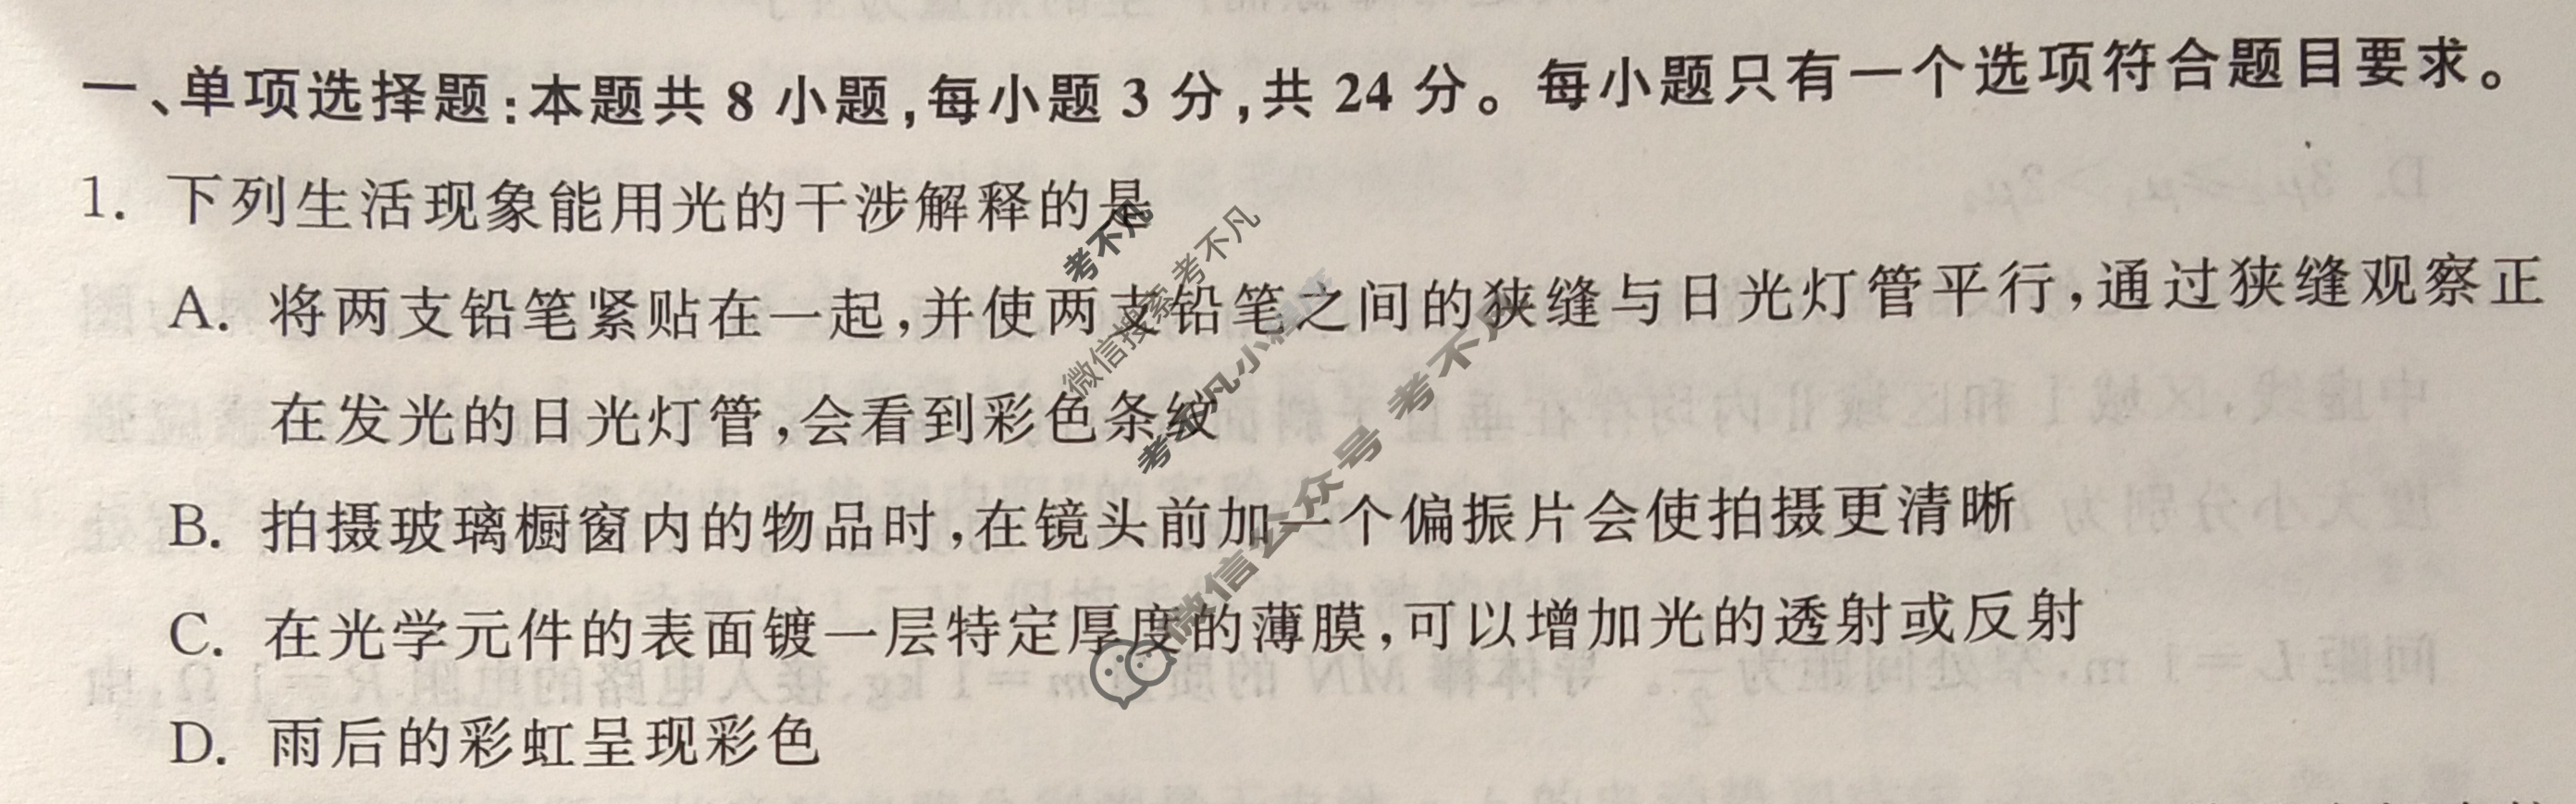 一、单项选择题:本题共 8 小题,每小题 3 分,共 24 分。每小题只有一个选项符合题目要求。
1. 下列生活现象能用光的干涉解释的是
A. 将两支铅笔紧贴在一起,并使两支铅笔之间的狭缝与日光灯管平行,通过狭缝观察正
在发光的日光灯管,会看到彩色条纹
B. 拍摄玻璃橱窗内的物品时,在镜头前加一个偏振片会使拍摄更清晰
C. 在光学元件的表面镀一层特定厚度的薄膜,可以增加光的透射或反射
D. 雨后的彩虹呈现彩色
考不凡
微信搜索考不凡
考不凡小
微信公众号 考不凡